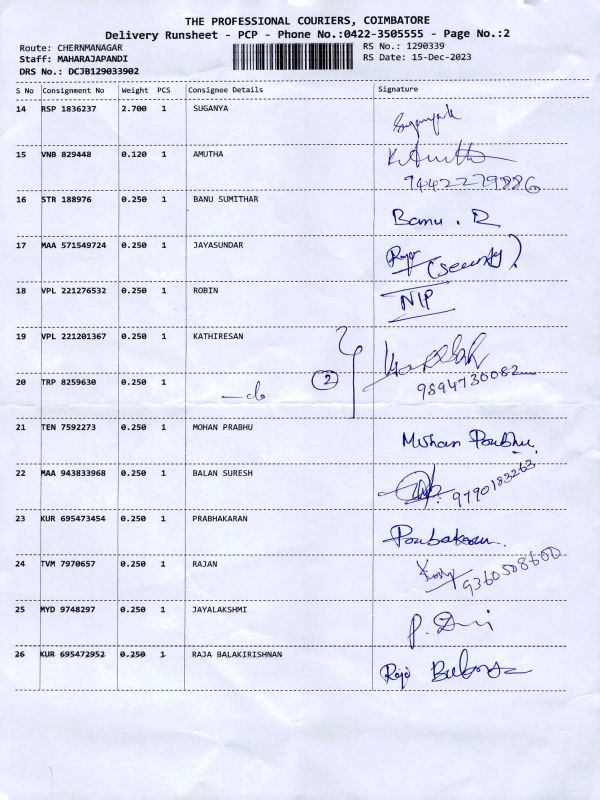 THE PROFESSIONAL COURIERS, COIMBATORE
Delivery Runsheet - PCP - Phone No.:0422-3505555 - Page No.:2
Route: CHERNMANAGAR RS No.: 1290339
Staff: MAHARAJAPANDI RS Date: 15-Dec-2023
DRS No.: DCJB129033902
S No Consignment No Weight PCS Consignee Details Signature
14 RSP 1836237 2.700 1 SUGANYA
15 VNB 829448 0.120 1 AMUTHA K. Amutha
9442279886
16 STR 188976 0.250 1 BANU SUMITHAR Banu . R
17 MAA 571549724 0.250 1 JAYASUNDAR (Security)
18 VPL 221276532 0.250 1 ROBIN NIP
19 VPL 221201367 0.250 1 KATHIRESAN
20 TRP 8259630 0.250 1 2 9894730082
21 TEN 7592273 0.250 1 MOHAN PRABHU Mohan Prabhu
22 MAA 943833968 0.250 1 BALAN SURESH 9790183263
23 KUR 695473454 0.250 1 PRABHAKARAN Prabakaran.
24 TVM 7970657 0.250 1 RAJAN 9360508600
25 MYD 9748297 0.250 1 JAYALAKSHMI
26 KUR 695472952 0.250 1 RAJA BALAKIRISHNAN Raja